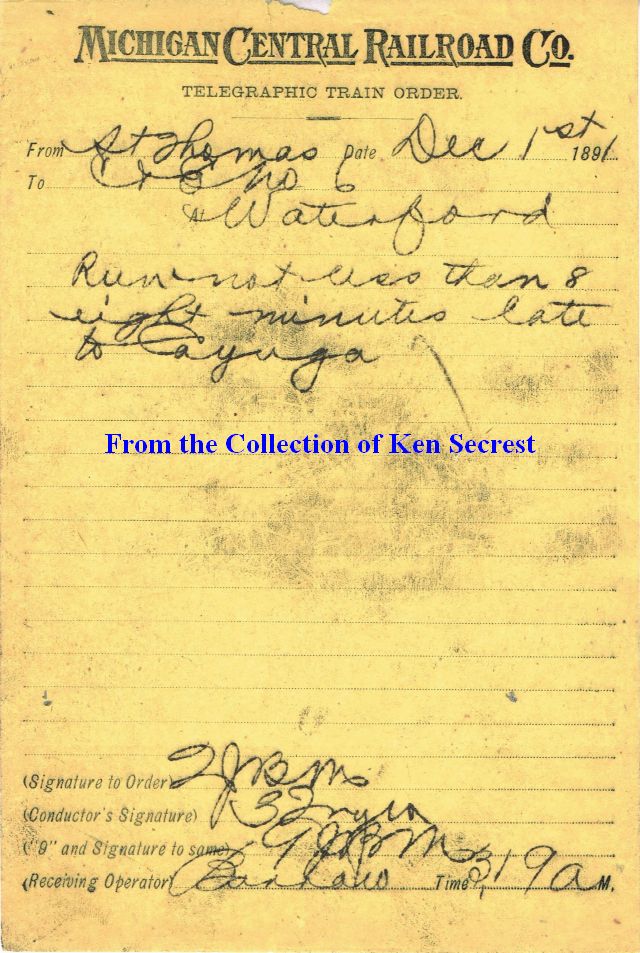 MICHIGAN CENTRAL RAILROAD CO.
TELEGRAPHIC TRAIN ORDER.
From St Thomas Date Dec 1st 1891.
To C & E No 6
At Waterford
Run not less than 8
eight minutes late
to Cayuga
From the Collection of Ken Secrest
(Signature to Order) JBM
(Conductor's Signature)
("9" and Signature to same) 9 JBM
(Receiving Operator) Time 3,19 A M.